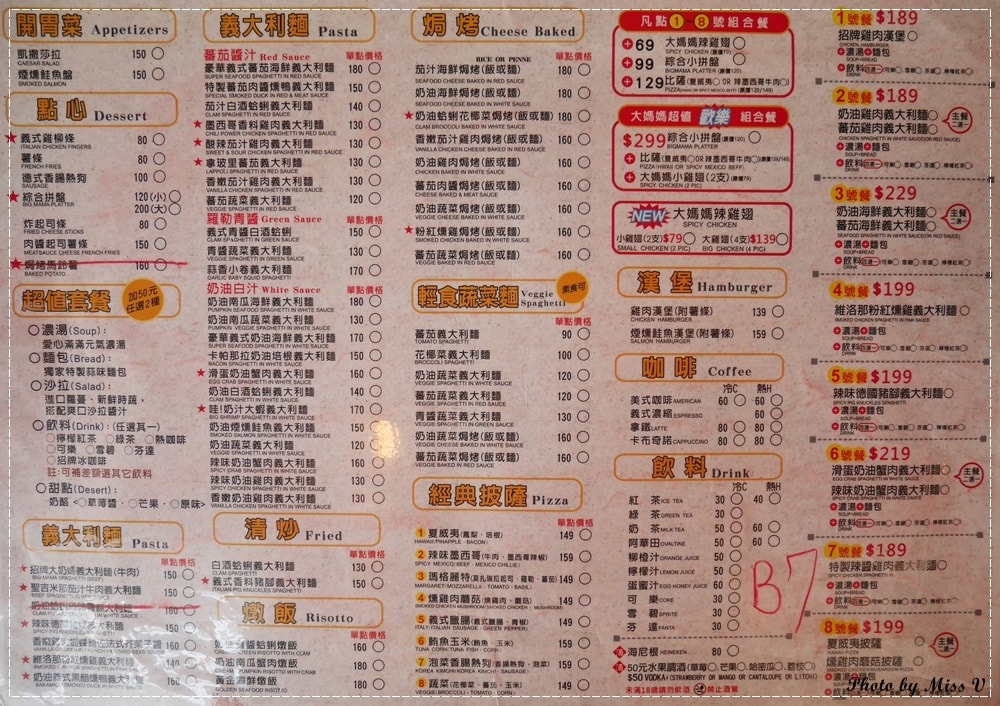 開胃菜 Appetizers
凱撒莎拉 150
CAESAR SALAD
煙燻鮭魚盤 150
SMOKED SALMON
點心 Dessert
★義式雞柳條 80
ITALIAN CHICKEN FINGERS
薯條 80
FRENCH FRIES
德式香腸熱狗 100
SAUSAGE
★綜合拼盤 120(小)
BIG MAMA PLATTER 200(大)
炸起司條 150
FRIED CHEESE STICKS
肉醬起司薯條 150
MEATSAUCE CHEESE FRENCH FRIES
★焗烤馬鈴薯 160
BAKED POTATO
超值套餐 加50元任選2種
濃湯(Soup):
愛心滿滿元氣濃湯
麵包(Bread):
獨家特製蒜味麵包
沙拉(Salad):
進口蘿蔓、新鮮時蔬,
搭配爽口沙拉醬汁
飲料(Drink):(任選其一)
檸檬紅茶 綠茶 熱咖啡
可樂 雪碧 芬達
招牌冰咖啡
註:可補差額選其它飲料
甜點(Desert):
奶酪<草莓醬 芒果 原味>
義大利麵 Pasta
單點價格
★招牌大媽媽義大利麵(牛肉) 150
BIG MAMA SPAGHETTI (BEEF)
★聖吉米那茄汁牛肉義大利麵 150
160
★辣味德 150
★維洛那粉紅燻雞義大利麵 140
★奶油義式黑醋燻鴨義大利麵 160
義大利麵 Pasta
蕃茄醬汁 Red Sauce 單點價格
豪華義式蕃茄海鮮義大利麵 180
SUPER SEAFOOD SPAGHETTI IN RED SAUCE
特製蕃茄肉醬燻鴨義大利麵 150
SPECIAL SMOKED DUCK IN RED & MEAT SAUCE
茄汁白酒蛤蜊義大利麵 140
CLAM SPAGHETTI IN RED SAUCE
★墨西哥香料雞肉義大利麵 130
CHILI POWER CHICKEN SPAGHETTI IN RED SAUCE
★酸辣茄汁雞肉義大利麵 130
SWEET & SOUR CHICKEN SPAGHETTI IN RED SAUCE
★拿玻里蕃茄義大利麵 130
香嫩茄汁雞肉義大利麵 130
VANILLA CHICKEN SPAGHETTI IN RED SAUCE
蕃茄蔬菜義大利麵 120
VEGGIE SPAGHETTI IN RED SAUCE
羅勒青醬 Green Sauce 單點價格
義式青醬白酒蛤蜊 150
CLAM SPAGHETTI IN GREEN SAUCE
青醬蔬菜義大利麵 130
VEGGIE SPAGHETTI IN GREEN SAUCE
蒜香小卷義大利麵 170
GARLIC BABY SQUID SPAGHETTI
奶油白汁 White Sauce 單點價格
奶油南瓜海鮮義大利麵 180
PUMPKIN SEAFOOD SPAGHETTI IN WHITE SAUCE
奶油南瓜蔬菜義大利麵 130
PUMPKIN VEGGIE SPAGHETTI IN WHITE SAUCE
豪華義式奶油海鮮義大利麵 170
SUPER SEAFOOD SPAGHETTI IN WHITE SAUCE
卡帕那拉奶油培根義大利麵 150
BACON SPAGHETTI IN WHITE SAUCE
★滑蛋奶油蟹肉義大利麵 160
EGG CRAB SPAGHETTI IN WHITE SAUCE
奶油白酒蛤蜊義大利麵 140
CLAM SPAGHETTI IN WHITE SAUCE
★哇!奶汁大蝦義大利麵 170
BIG SHRIMP SPAGHETTI IN WHITE SAUCE
奶油煙燻鮭魚義大利麵 150
SMOKED SALMON SPAGHETTI IN WHITE SAUCE
奶油蔬菜義大利麵 120
VEGGIE SPAGHETTI IN WHITE SAUCE
辣味奶油蟹肉義大利麵 160
SPICY CRAB SPAGHETTI IN WHITE SAUCE
辣味奶油雞肉義大利麵 130
SPICY CHICKEN SPAGHETTI IN WHITE SAUCE
香嫩奶油雞肉義大利麵 130
VANILLA CHICKEN SPAGHETTI IN WHITE SAUCE
清炒 Fried
單點價格
白酒蛤蜊義大利麵 130
CLAM SPAGHETTI
★義式香料豬腳義大利麵 150
ITALIAN PIG KNUCKLES SPAGHETTI
燉飯 Risotto
單點價格
奶油青醬蛤蜊燉飯 160
奶油南瓜蟹肉燉飯 180
黃金海鮮燉飯 180
GOLDEN SEAFOOD RISOTTO
焗烤 Cheese Baked
RICE OR PENNE 單點價格
茄汁海鮮焗烤(飯或麵) 180
SEAFOOD CHEESE BAKED IN RED SAUCE
奶油海鮮焗烤(飯或麵) 180
SEAFOOD CHEESE BAKED IN WHITE SAUCE
★奶油蛤蜊花椰菜焗烤(飯或麵) 180
CLAM BROCCOLI BAKED IN WHITE SAUCE
香嫩茄汁雞肉焗烤(飯或麵) 160
VANILLA CHICKEN CHEESE BAKED IN RED SAUCE
奶油雞肉焗烤(飯或麵) 160
CHICKEN CHEESE BAKED IN WHITE SAUCE
蕃茄肉醬焗烤(飯或麵) 160
CHEESE BAKED & MEAT SAUCE
奶油蔬菜焗烤(飯或麵) 160
VEGGIE CHEESE BAKED IN WHITE SAUCE
★粉紅燻雞焗烤(飯或麵) 160
SMOKED CHICKEN BAKED IN WHITE SAUCE
蕃茄蔬菜焗烤(飯或麵) 160
VEGGIE BAKED IN RED SAUCE
輕食蔬菜麵 Veggie Spaghetti 素食可
單點價格
蕃茄義大利麵 90
TOMATO SPAGHETTI
花椰菜義大利麵 100
BROCCOLI SPAGHETTI
奶油蔬菜義大利麵 120
VEGGIE SPAGHETTI IN WHITE SAUCE
蕃茄蔬菜義大利麵 120
VEGGIE SPAGHETTI IN RED SAUCE
青醬蔬菜義大利麵 130
VEGGIE SPAGHETTI IN GREEN SAUCE
奶油蔬菜焗烤(飯或麵) 160
VEGGIE BAKED IN WHITE SAUCE
蕃茄蔬菜焗烤(飯或麵) 160
VEGGIE BAKED IN RED SAUCE
經典披薩 Pizza
單點價格
1 夏威夷(鳳梨、培根) 149
HAWAII (PINEAPPLE、BACON)
2 辣味墨西哥(牛肉、墨西哥辣椒) 159
SPICY MEXICO (BEEF、MEXICO CHILLIE)
3 瑪格麗特(莫扎瑞拉起司、羅勒、蕃茄) 149
MARGARET(MOZZARELLA、TOMATO、BASIL)
4 燻雞肉蘑菇(燻雞肉、蘑菇) 149
SMOKED CHICKEN MUSHROOM
5 義式臘腸(義式臘腸、青椒) 149
6 鮪魚玉米(鮪魚、玉米) 159
TUNA CORN(TUNA FISH、CORN)
7 泡菜香腸熱狗(香腸熱狗、泡菜) 159
8 蔬菜(花椰菜、蕃茄、玉米) 149
凡點1-8號組合餐
+69 大媽媽辣雞翅
SPICY CHICKEN
+99 綜合小拼盤
BIGMAMA PLATTER
+129 比薩(夏威夷OR辣墨西哥牛肉)
大媽媽超值 歡樂 組合餐
$299 綜合小拼盤
BIGMAMA PLATTER
+ 比薩(夏威夷OR辣墨西哥牛肉)
+ 大媽媽小雞翅(2支)
SPICY CHICKEN (2 PIC)
NEW 大媽媽辣雞翅
SPICY CHICKEN
小雞翅(2支)$79 大雞翅(4支)$139
SMALL CHICKEN (2 PIC) BIG CHICKEN (4 PIC)
漢堡 Hamburger
雞肉漢堡(附薯條) 139
CHICKEN HAMBURGER
煙燻鮭魚漢堡(附薯條) 159
SALMON HAMBURGER
咖啡 Coffee
冷C 熱H
美式咖啡AMERICAN 60 60
義式濃縮ESPRESSO 60
拿鐵LATTE 80 80
卡布奇諾CAPPUCCINO 80 80
飲料 Drink
冷C 熱H
紅茶ICE TEA 30 40
綠茶GREEN TEA 30
奶茶MILK TEA 50 60
阿華田OVALTINE 50 60
柳橙汁ORANGE JUICE 50
檸檬汁LEMON JUICE 50
蛋蜜汁EGG HONEY JUICE 60
可樂COKE 30
雪碧SPRITE 30
芬達FANTA 30
B7
海尼根HEINEKEN 80
50元水果調酒(草莓、芒果、哈密瓜、荔枝)
$50 VODKA+(STRAWBERRY OR MANGO OR CANTALOUPE OR LITCH)
未滿18歲請勿飲酒 禁止酒駕
1號餐 $189
招牌雞肉漢堡
CHICKEN HAMBURGER
+濃湯+麵包
SOUP+BREAD
+飲料
DRINK
2號餐 $189
奶油雞肉義大利麵
蕃茄雞肉義大利麵
主餐二選一
+濃湯
+麵包
+飲料
3號餐 $229
奶油海鮮義大利麵
蕃茄海鮮義大利麵
主餐二選一
+濃湯
+麵包
+飲料
4號餐 $199
維洛那粉紅燻雞義大利麵
+濃湯
+麵包
+飲料
5號餐 $199
辣味德國豬腳義大利麵
SPICY PIG KNUCKLES SPAGHETTI
+濃湯
+麵包
+飲料
6號餐 $219
滑蛋奶油蟹肉義大利麵
EGG CRAB SPAGHETTI IN WHITE SAUCE
辣味奶油蟹肉義大利麵
SPICY CRAB SPAGHETTI IN WHITE SAUCE
主餐二選一
+濃湯+麵包
SOUP+BREAD
+飲料
7號餐 $189
特製辣醬雞肉義大利麵
+濃湯+麵包
+飲料
8號餐 $199
夏威夷披薩
HAWAII PIZZA
燻雞肉蘑菇披薩
主餐二選一
Photo by Miss V